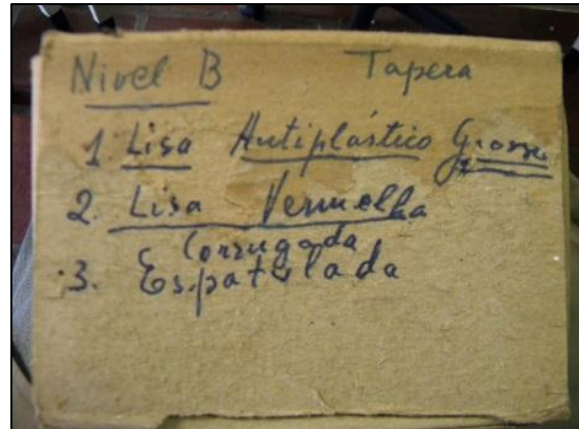 Nivel B Tapera
1. Lisa Antiplástico Grosso
2. Lisa Vermelha
Corrugada
3. Espatulada